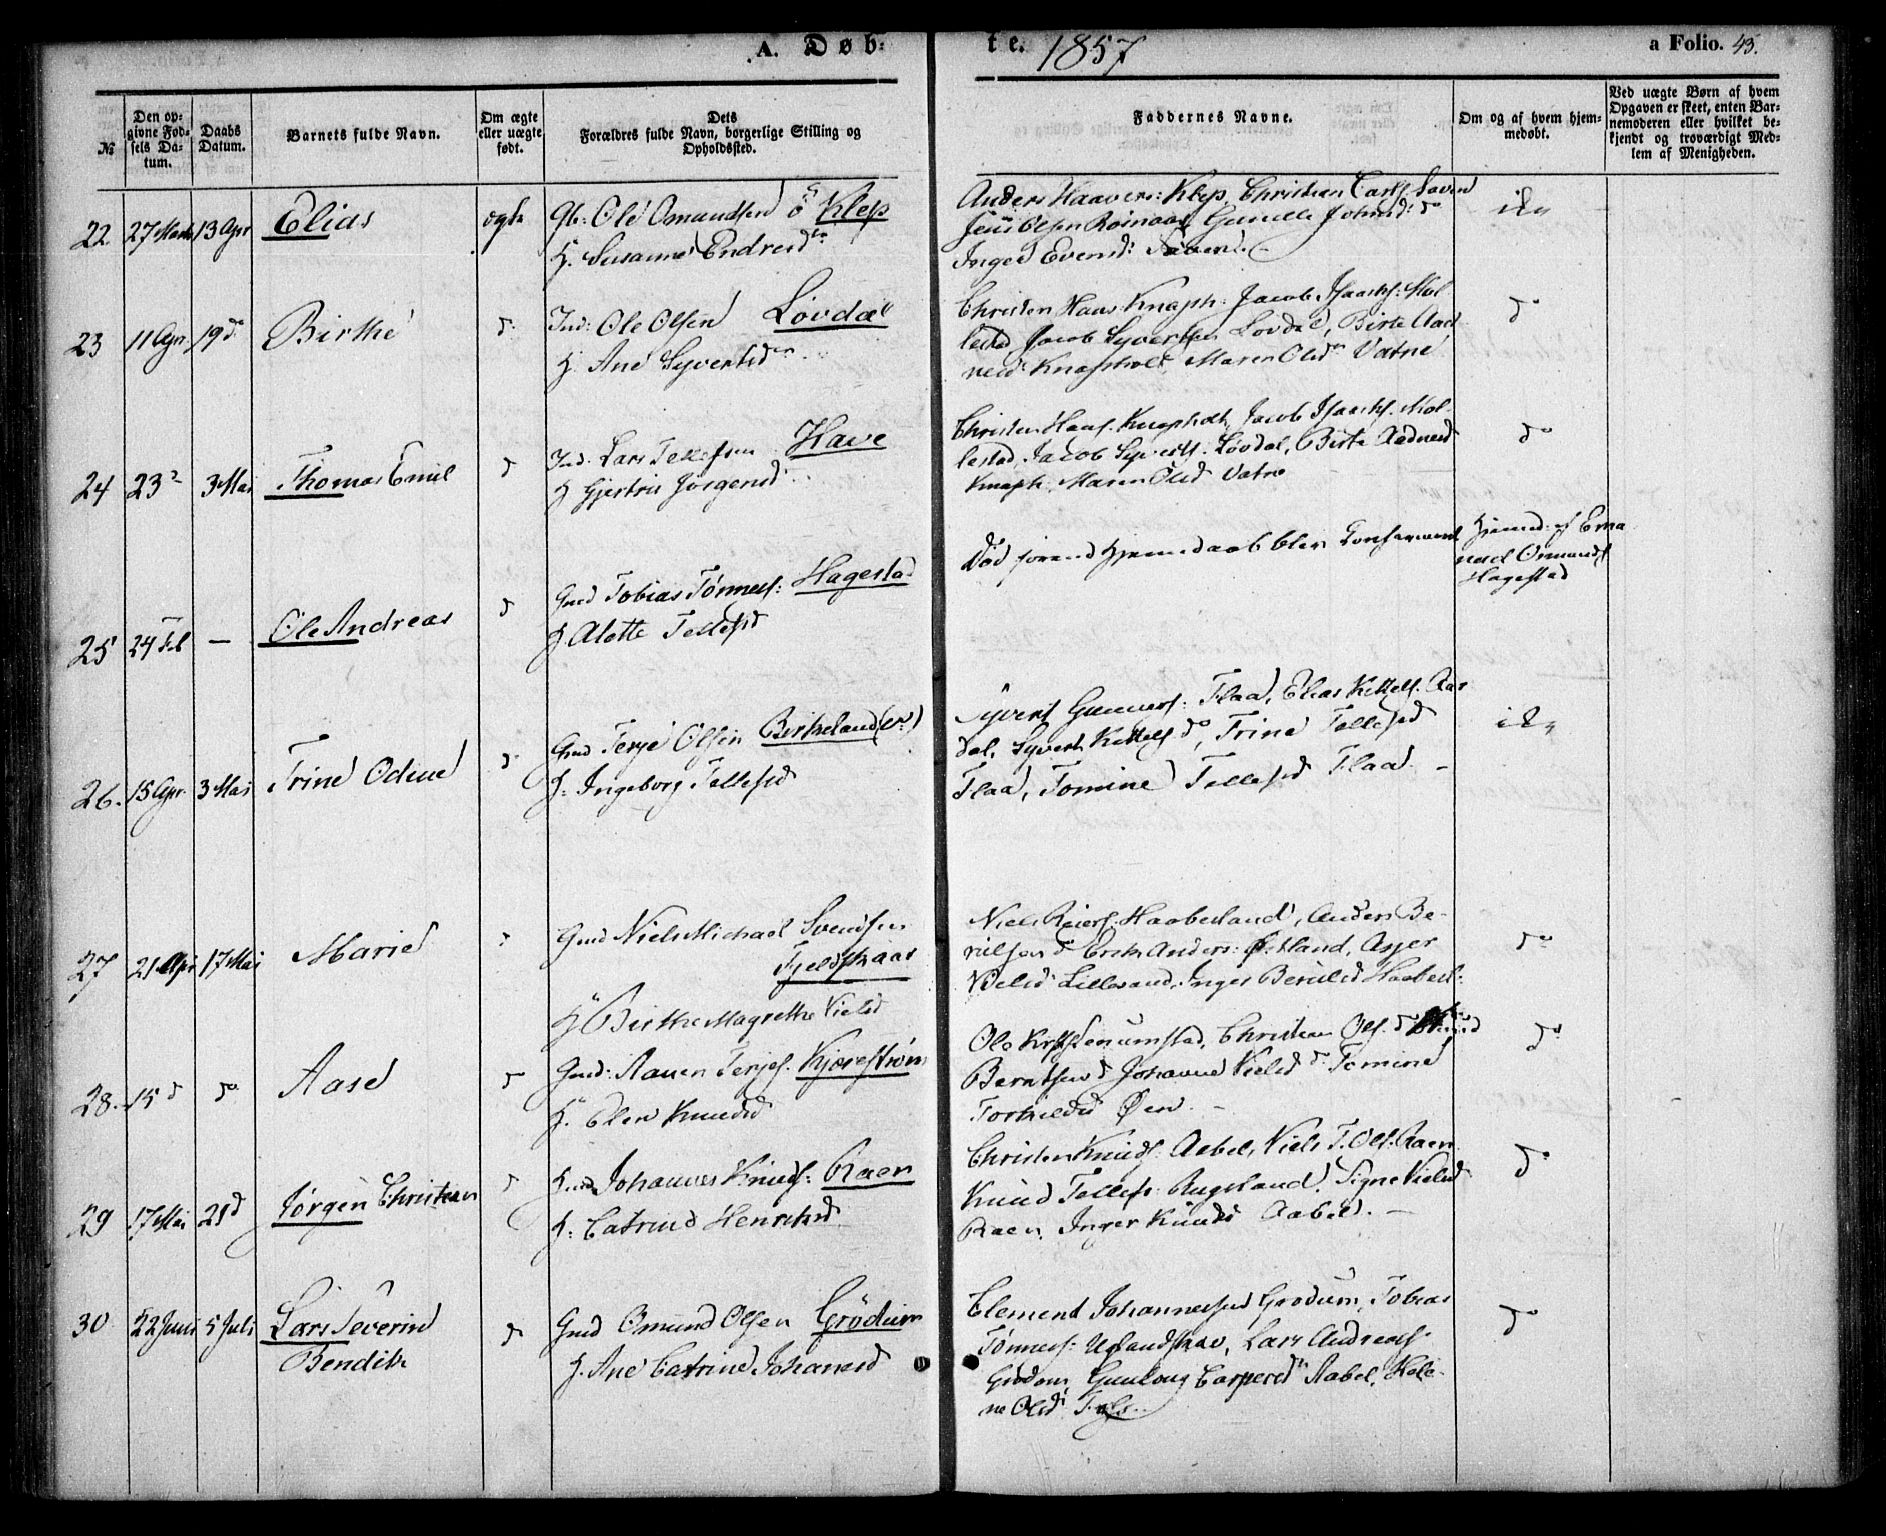 A. Døb:
te. 1857
a Folio. 43.
№
Den opgivne Fødsels Datum.
Daabs Datum.
Barnets fulde Navn.
Om ægte eller uægte født.
Dets Forældres fulde Navn, borgerlige Stilling og Opholdssted.
Faddernes Navne.
Om og af hvem hjemmedøbt.
Ved uægte Børn af hvem Opgaven er skeet, enten Barnemoderen eller hvilket bekjendt og troværdigt Medlem af Menigheden.
22. 27 Marts 13 Apr Elias ægte Ole Omundsen Ø Klep
H. Susanne Endresd
Anders Haavers: Klep, Christian Carls
Jens Olsen Gunille Johnsd: do
Inger Evensd:
23 11 Apr 19 do Birthe do Ind: Ole Olsen Løvdal
H. Ane Syvertsd
Christen Hans Knaph: Jacob Isachs: Mol
lestad Jacob Syvertsen Løvdal, Birte Aad
nesd Knapholt Maren Olsd Vatne
do
24 23 3 Mai Thomas Emil do Ind: Lars Tellefsen Have
H Gjertru Jørgensd
Christen Hans. Knapholt, Jacob Isachs. Mol-
lestad, Jacob Syverts. Løvdal, Birte Aadnesd
Knaph. Maren Olsd Vatne
do
25 24 Feb — Ole Andreas do Gmd Tobias Tønnes: Hagestad
H. Alette Tellefsd
Død førend Hjemmedaab blev Confirmeret
Hjemmed: af Ema
nuel Omunds
Hagestad
26. 15 Apr. 3 Mai Trine Odine do Gmd Terje Olsen Birkeland
H: Ingeborg Tellefsd
Syvert Gunners: Flaa, Elias Kittels. Aas
dal, Syvert Kittels do, Trine Tellefsd
Flaa, Tomine Tellefsd Flaa –
27 21 Apr 17 Mai Marie Gmd Niels Michael Svendsen
Fjeldskaar
H Birthe Magrethe Nielsd
Niels Reiers. Haabesland, Anders Be-
rulfsen do Erik Anders: Østland, Asjer
Nielsd Lillesand, Inger Berulsd Haabesl:
do
28. 15 do do Aase do Gmd: Aanen Terjes. Kjørestrøm
H. Elen Knudsd
Ole Senumstad, Christian Ols. do
Berntsen do Johanne Nielsd do Tomine
Torkildsd Øen. –
do
29 17 Mai 21 do Jørgen Christian do Johannes Knuds: Raen
H: Catrine Henriksd
Christen Knuds: Aabel, Niels T. Ols. Raen
Knud Tellefs: Rugsland, Signe Nielsd
Raen, Inger Knudsd Aabel. –
do
30 22 Juni 5 Juli Lars Severin do Gmd Omund Olsen Grødum
Bendik H. Ane Catrine Johannesd
Clement Johannessen Grødum, Tobias
Tønnes: Uglandskav, Lars Andreas
Grødum, Gunlaug Caspersd Aabel, Hele-
ne Olsd
do